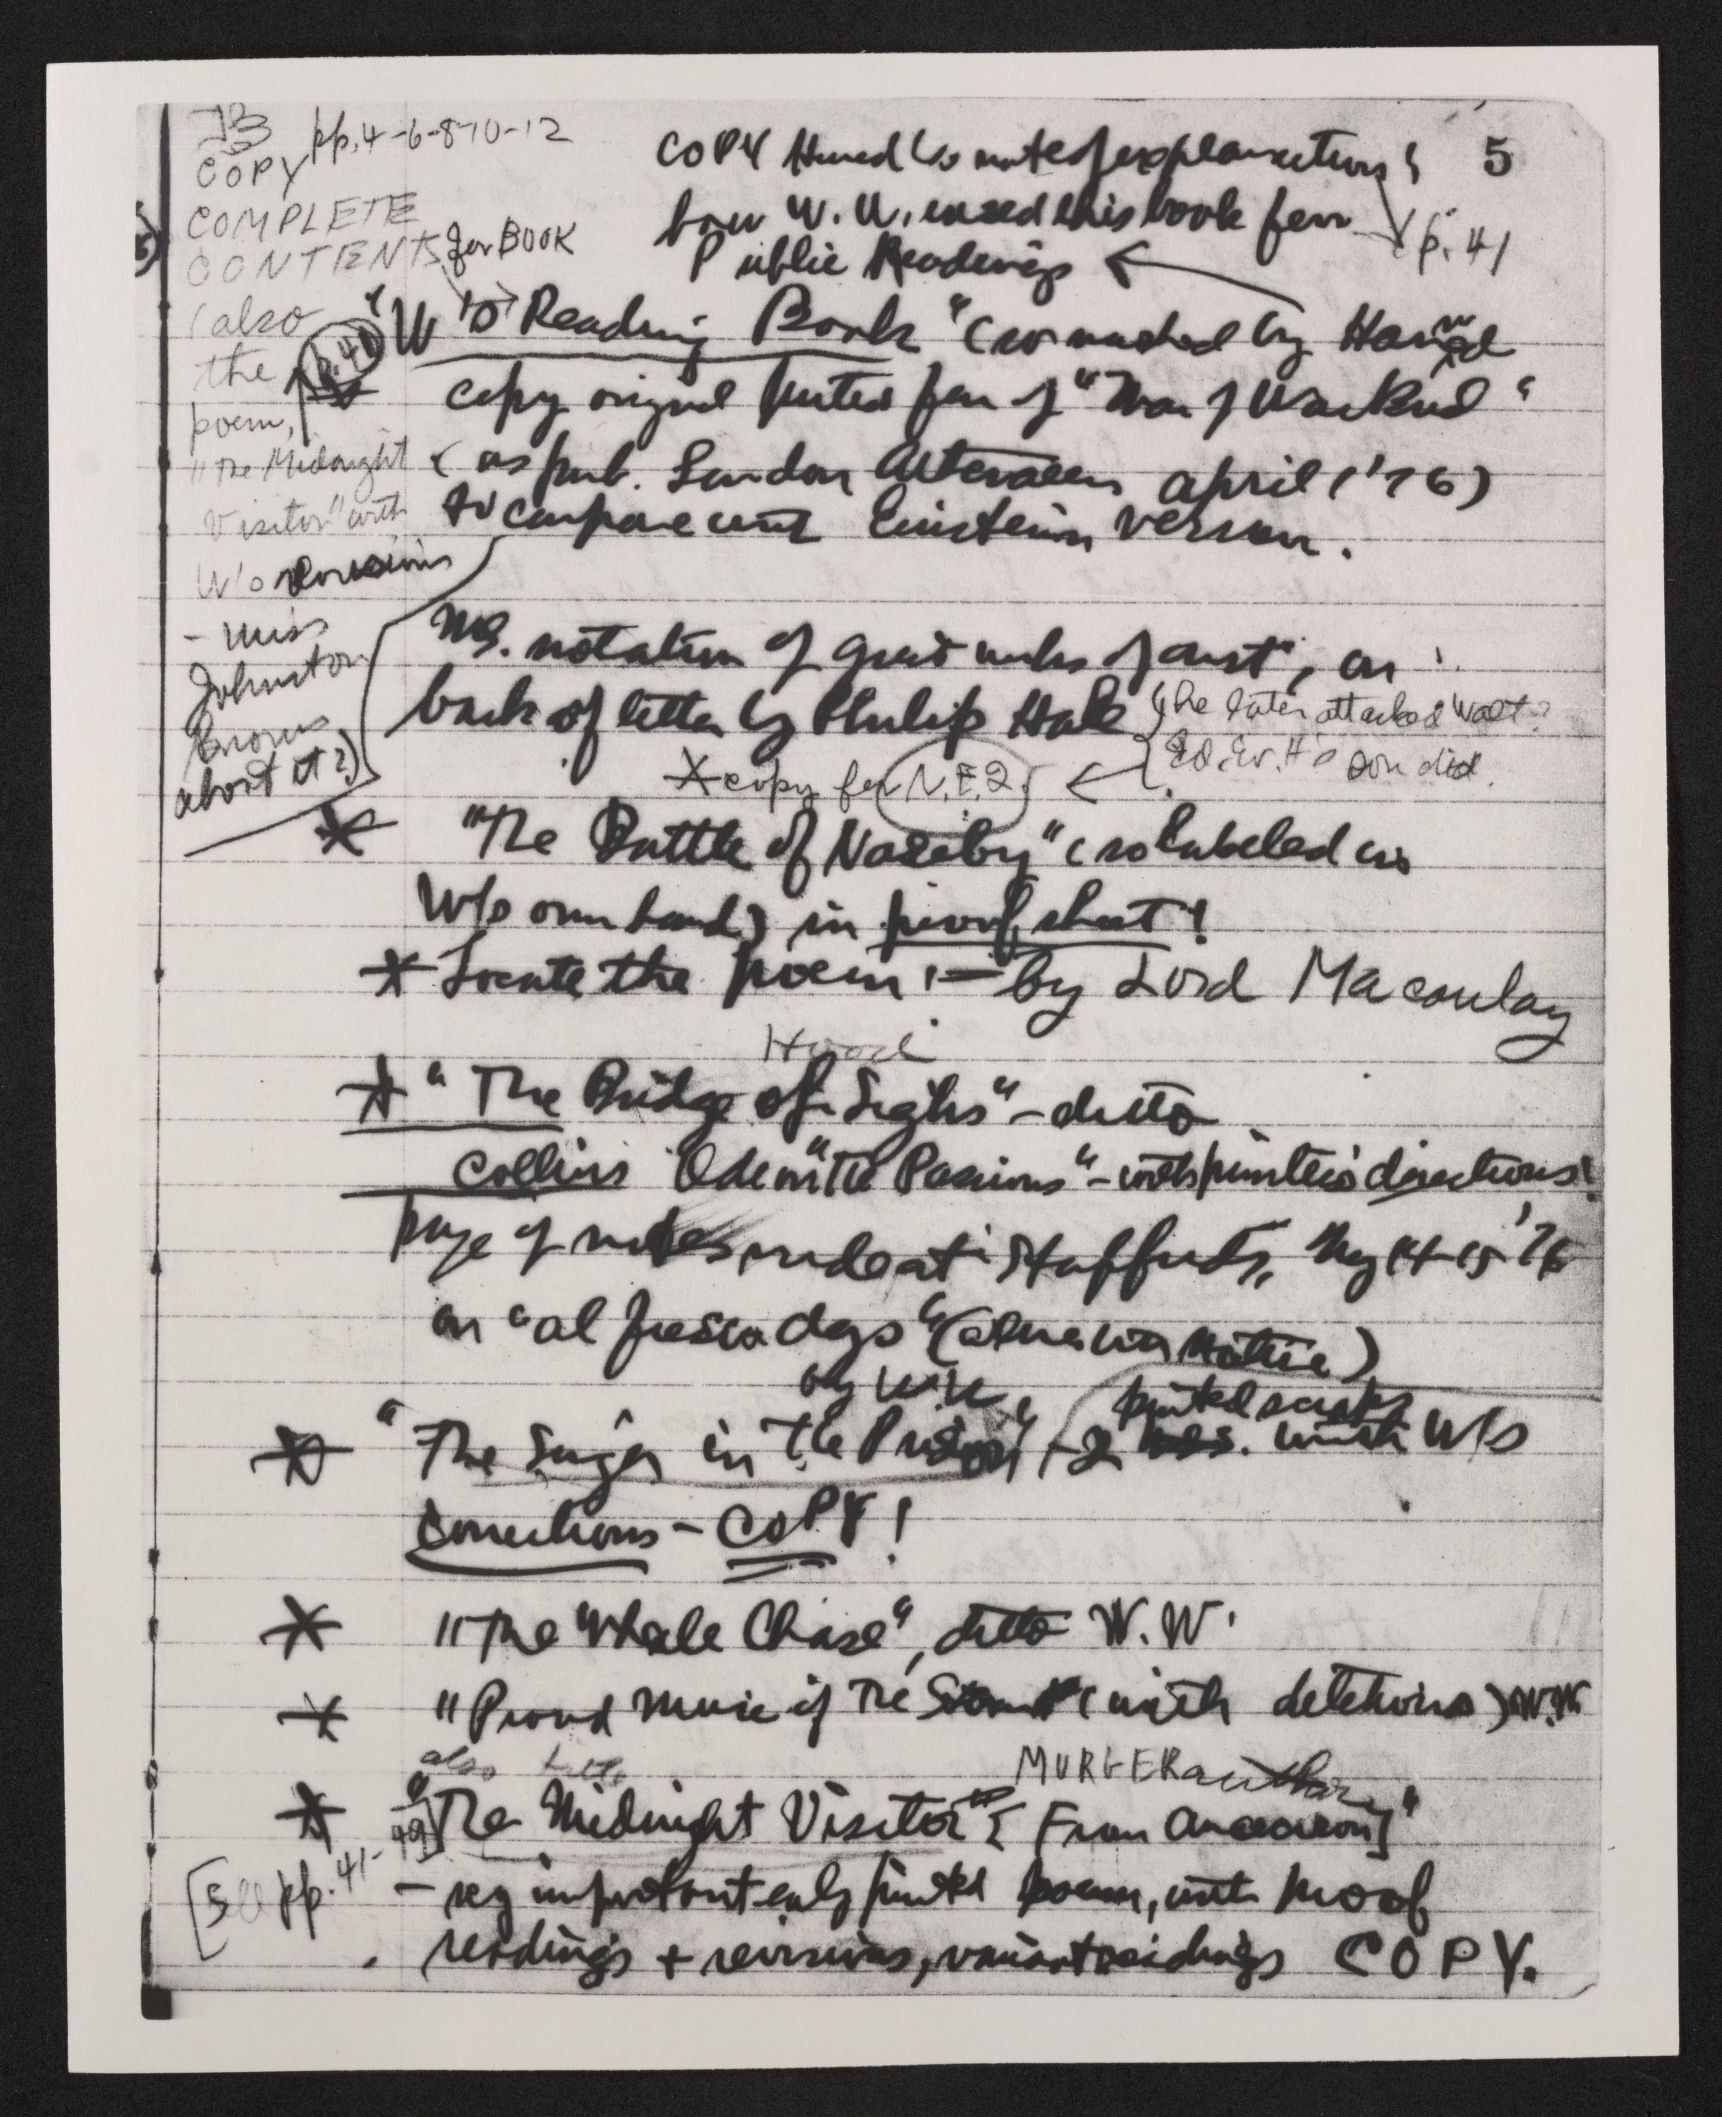 pp. 4-6-8-10-12
COPY
COMPLETE
CONTENTS for BOOK
(also
the
poem,
"The Midnight
Visitor" with
W's revisions
- Miss
Johnston
knows
about it?)
COPY Harned's note of explanation! 5
how W. W. used this book for p. 41
Public Readings
"W's Reading Book" (so marked by Harned
p. 41
copy original printed form of "Man of War Bird"
(as pub. London Athenaeum April ('76)
to compare with Einstein version.
MS. notation of of art", on
back of letter by Philip Hale (he later attacked Walt?
Ed. Ev. H's son did.
* copy for N.E.Q.
* "The Battle of Naseby" (so labeled in
W's own hand) in proof sheet!
* Locate the poem :- by Lord Macaulay
Hood
* "The Bridge of Sighs" - ditto
Collins "Ode on the Passions" - with printer's directions!
page of notes made at Staffords, May 14-15 '76
on "al fresco days" (alone with Nature)
by W.W. printed scraps
* "The Singer in the Prison", - 2 with W's
corrections - COPY!
* "The Whale Chase", ditto W.W.
* "Proud Music of The Storm" (with deletions) W.W.
also MURGER author
* "The Midnight Visitor" [From Anacreon]"
[See pp. 41-49]
- important early printed poem, with proof
readings + revisions, variant readings COPY.